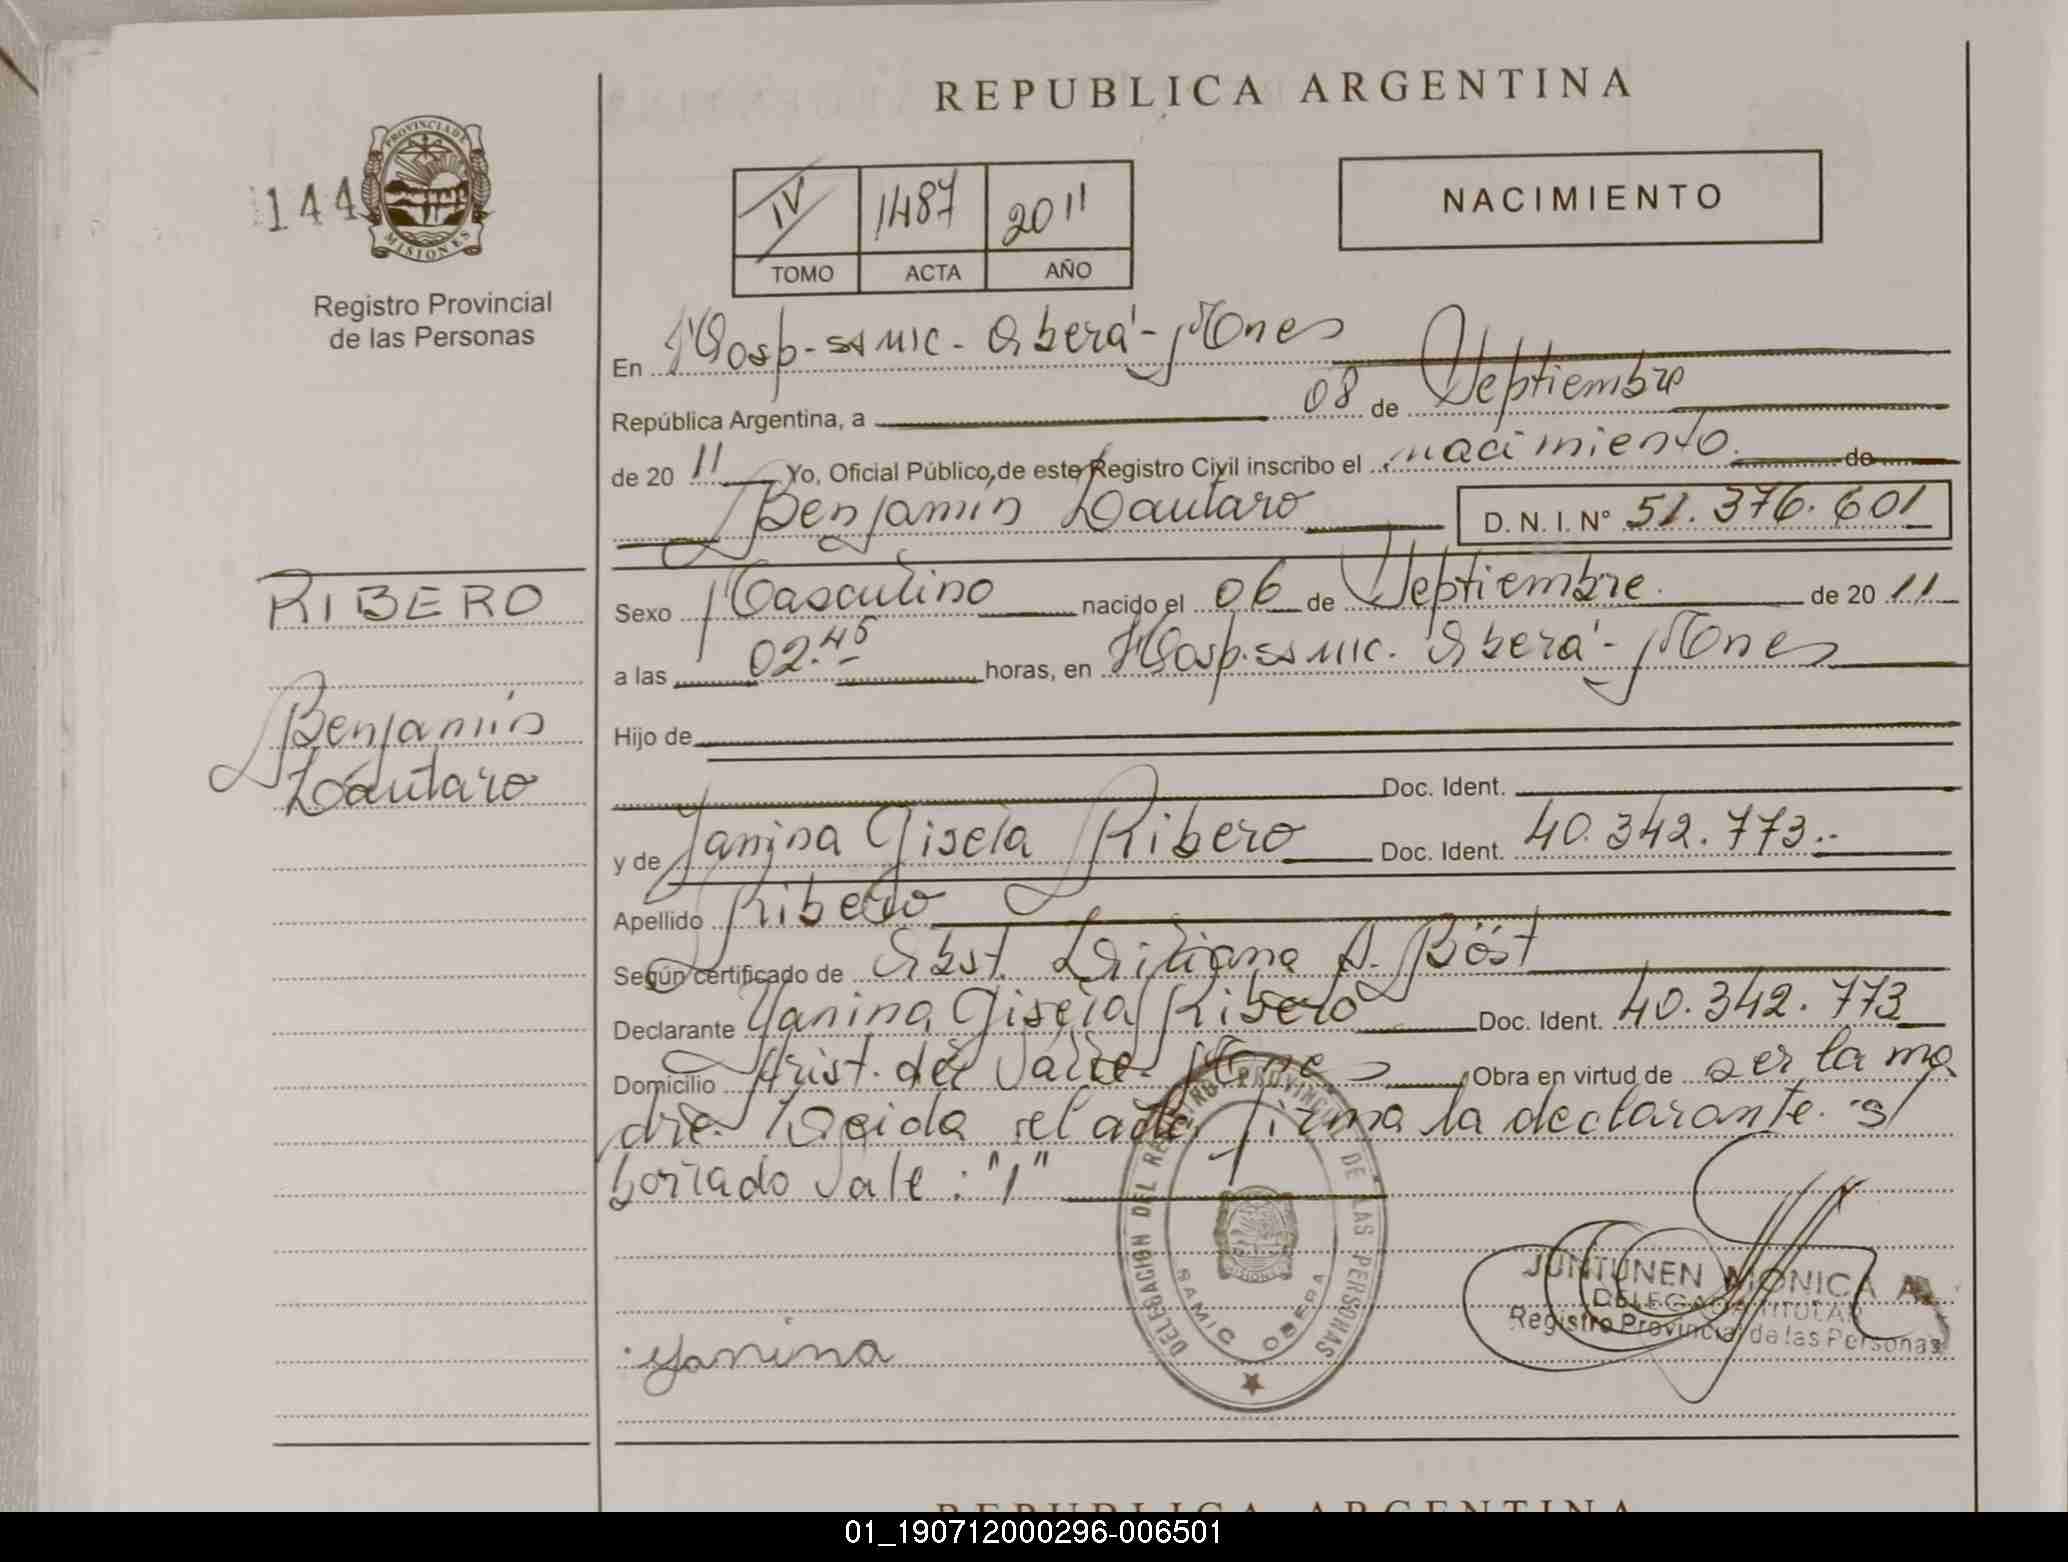 REPUBLICA ARGENTINA
144
PROVINCIA DE
MISIONES
Registro Provincial
de las Personas
IV 1487 2011
TOMO ACTA AÑO
NACIMIENTO
En Hosp. ssmic. Oberá - Mnes
República Argentina, a 08 de Septiembre
de 20 11 Yo, Oficial Público, de este Registro Civil inscribo el nacimiento de
Benjamín Lautaro D. N. I. N° 51.376.601
RIBERO
Benjamín
Lautaro
Sexo Masculino nacido el 06 de Septiembre de 20 11
a las 02.45 horas, en Hosp. ssmic. Oberá - Mnes
Hijo de
Doc. Ident.
y de Yanina Gisela Ribero Doc. Ident. 40.342.773.-
Apellido Ribero
Según certificado de Obst. Liliana A. Böst
Declarante Yanina Gisela Ribero Doc. Ident. 40.342.773
Domicilio Arist. del Valle Mnes Obra en virtud de ser la ma
dre. Leida el acta, firma la declarante. s/
borrado Vale: "1"
DELEGACION DEL REGISTRO PROVINCIAL DE LAS PERSONAS
SAMIC OBERA
JUNTUNEN MONICA A.
DELEGADA TITULAR
Registro Provincial de las Personas
Yanina
REPUBLICA ARGENTINA
01_190712000296-006501